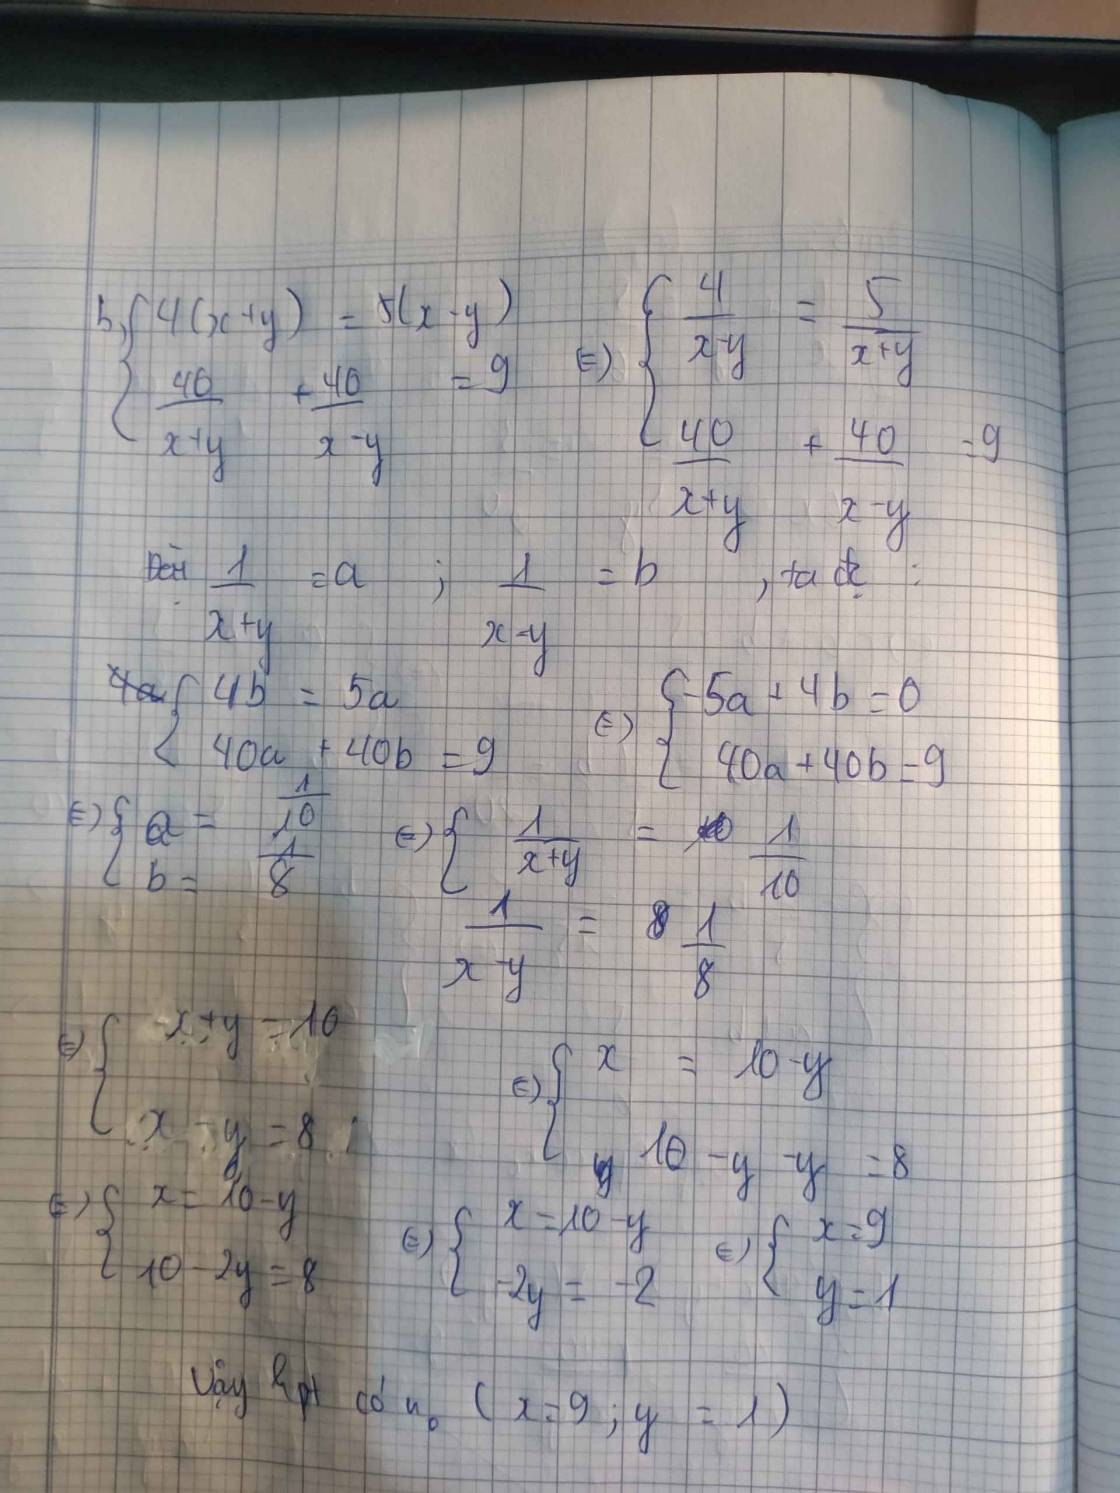 b, { 4(x+y) = 5(x-y)
40/(x+y) + 40/(x-y) = 9
<=> { 4/(x-y) = 5/(x+y)
40/(x+y) + 40/(x-y) = 9
Đặt 1/(x+y) = a ; 1/(x-y) = b , ta đc :
{ 4b = 5a
40a + 40b = 9
<=> { -5a + 4b = 0
40a + 40b = 9
<=> { a = 1/10
b = 1/8
<=> { 1/(x+y) = 1/10
1/(x-y) = 1/8
<=> { x+y = 10
x - y = 8
<=> { x = 10-y
10 - y - y = 8
<=> { x = 10-y
10 - 2y = 8
<=> { x = 10-y
-2y = -2
<=> { x = 9
y = 1
Vậy hpt có n₀ ( x = 9 ; y = 1 )